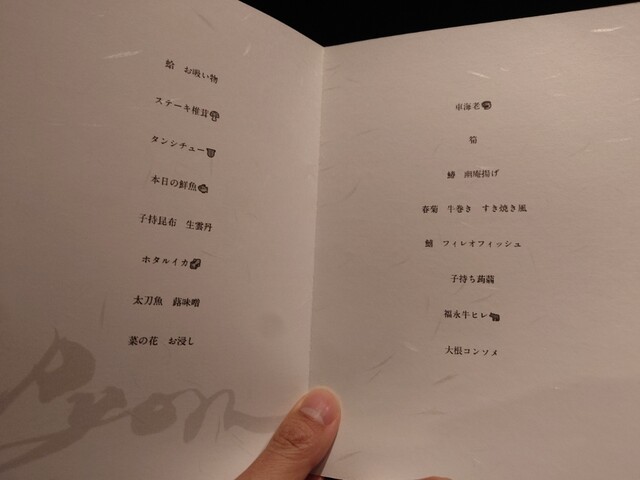 蛤 お吸い物
ステーキ椎茸
タンシチュー
本日の鮮魚
子持昆布 生雲丹
ホタルイカ
太刀魚 蕗味噌
菜の花 お浸し
車海老
筍
鰆 幽庵揚げ
春菊 牛巻き すき焼き風
鱧 フィレオフィッシュ
子持ち蒟蒻
福永牛ヒレ
大根コンソメ